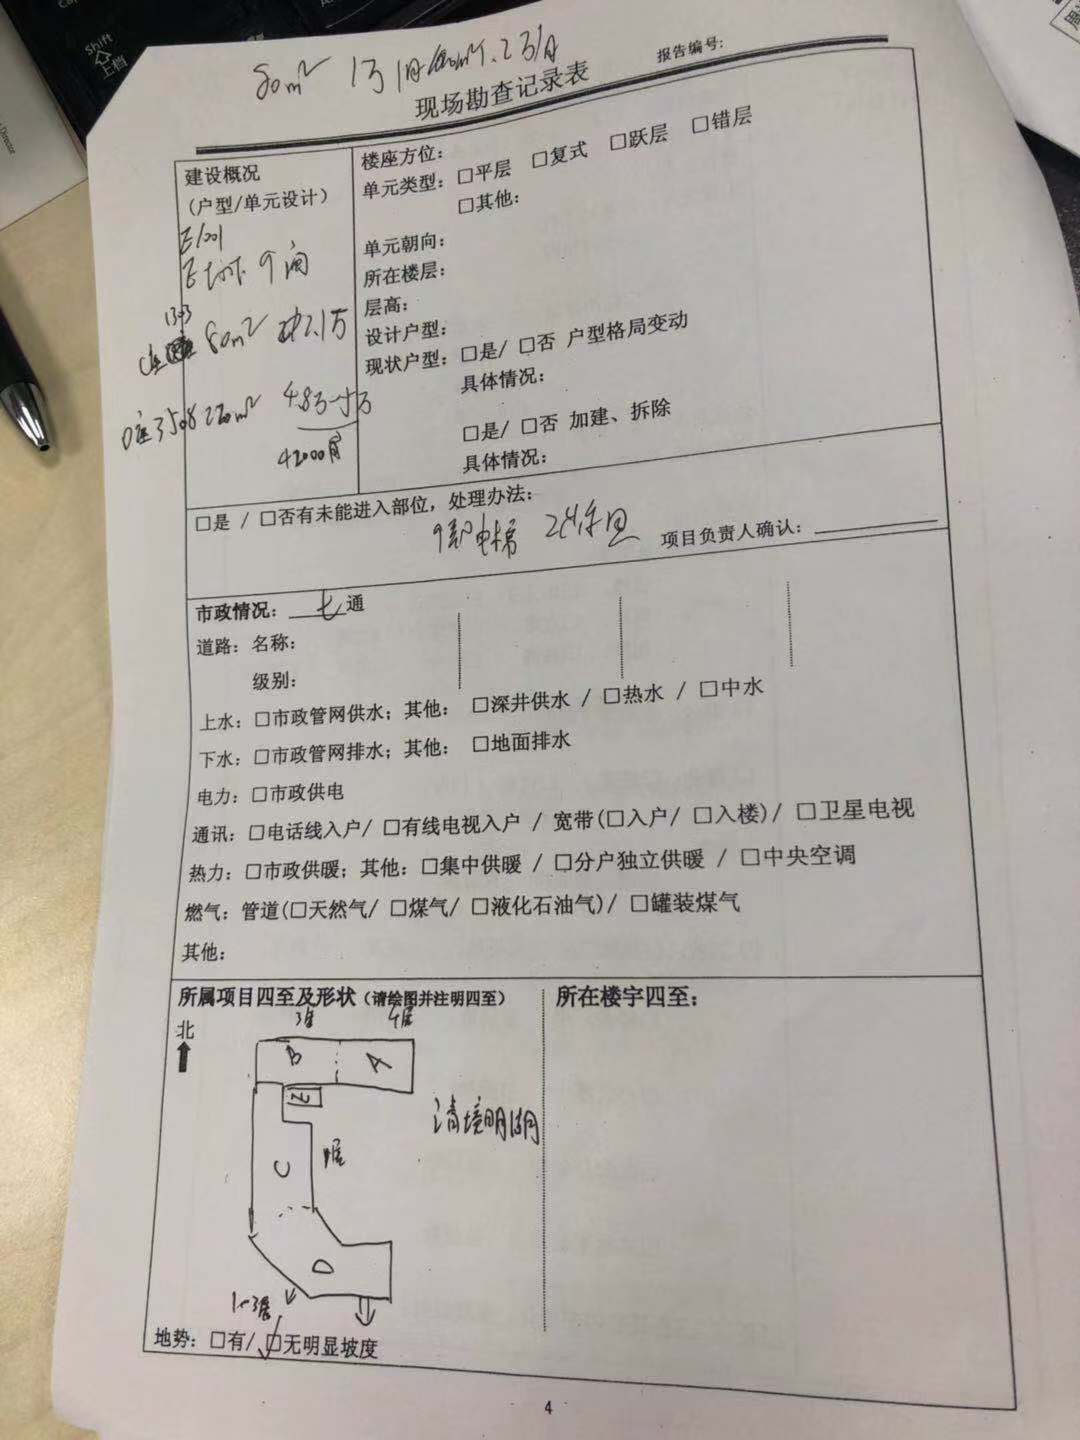 Shift
上档
80m²
报告编号:
现场勘查记录表
建设概况
(户型/单元设计)
E1001
9间
1303
80m² 2.1万
D座3508 220m² 4.8万-5万
42000月
楼座方位:
单元类型: □平层 □复式 □跃层 □错层
□其他:
单元朝向:
所在楼层:
层高:
设计户型:
现状户型: □是/ □否 户型格局变动
具体情况:
□是/ □否 加建、拆除
具体情况:
□是 / □否有未能进入部位, 处理办法:
9部电梯
项目负责人确认:
市政情况: 七通
道路: 名称:
级别:
上水: □市政管网供水; 其他: □深井供水 / □热水 / □中水
下水: □市政管网排水; 其他: □地面排水
电力: □市政供电
通讯: □电话线入户/ □有线电视入户 / 宽带(□入户/ □入楼)/ □卫星电视
热力: □市政供暖; 其他: □集中供暖 / □分户独立供暖 / □中央空调
燃气: 管道(□天然气/ □煤气/ □液化石油气)/ □罐装煤气
其他:
所属项目四至及形状(请绘图并注明四至)
所在楼宇四至:
北
B A
C
D
清境明湖
地势: □有/ □无明显坡度
4